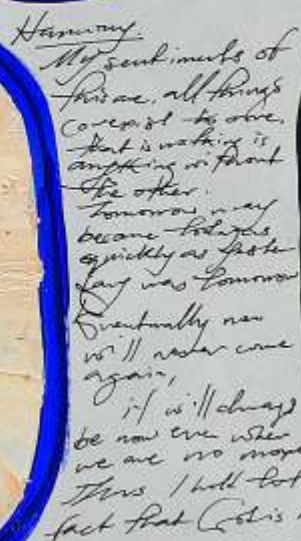 Harmony.
My sentiments of
this are, all things
coexist to one,
that is nothing is
anything without
the other.
Tomorrow may
become today as
quickly as yester
day was tomorrow
Eventually now
will never come
again,
it will always
be now even when
we are no more
Thus I hold
fact that God is